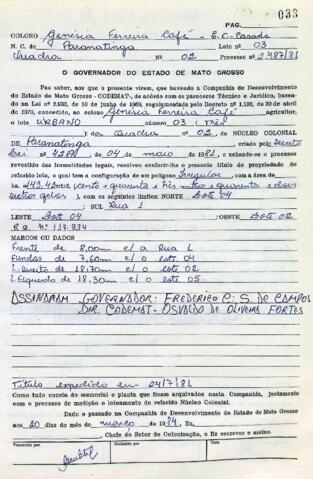 PAG. 033
COLONO Genésia Ferreira Café - E.C- Casada
N. C. de Paranatinga Lote nº 03
Quadra Nº 02 Processo 2487/81
O GOVERNADOR DO ESTADO DE MATO GROSSO
Faz saber, aos que o presente virem, que havendo a Companhia de Desenvolvimento
do Estado de Mato Grosso - CODEMAT-, de acôrdo com os pareceres Técnico e Jurídico, basea-
do na Lei nº 2.933, de 10 de junho de 1969, regulamentada pelo Decreto nº 1.138, de 30 de abril
de 1970, concedido, ao colono Genésia Ferreira Café agricultor,
o lote URBANO número 03 (três)
) da Quadra nº 02, DO NÚCLEO COLONIAL
DE Paranatinga criado pelo Decreto
Lei nº de 04 de maio de 1981, e achando-se o processo
revestido das formalidades legais, resolveu conferir-lhe o presente título de propriedade do
referido lote, o qual tem a configuração de um polígono Irregular, com a área de
(cento e quarenta e três metros e quarenta e dois
), com os seguintes limites: NORTE Lote 04
; SUL Rua 1
LESTE Lote 04 ; OESTE Lote 02
R.G. nº 117.934
MARCOS OU DADOS
Frente de 8,00m c/ a Rua 1
Fundos de 7,60m c/ o lote 04
L. Direito de 18.70m c/ o lote 02
L. Esquerdo de 18.30m c/ o lote 05
ASSINARAM GOVERNADOR: FREDERICO C. S. DE CAMPOS
DIR. CODEMAT- OSVALDO DE OLIVEIRA FORTES
Título expedido em 24/7/81
Como tudo consta do memorial e planta que ficam arquivados nesta Companhia, juntamente
com o processo de medição e loteamento do referido Núcleo Colonial.
Dado e passado na Companhia de Desenvolvimento do Estado de Mato Grosso
aos 20 dias do mês de março de 1984, Eu,
, Chefe do Setor de Colonização, o fiz escrever e assino.
Transcrito por Conferido por Visto